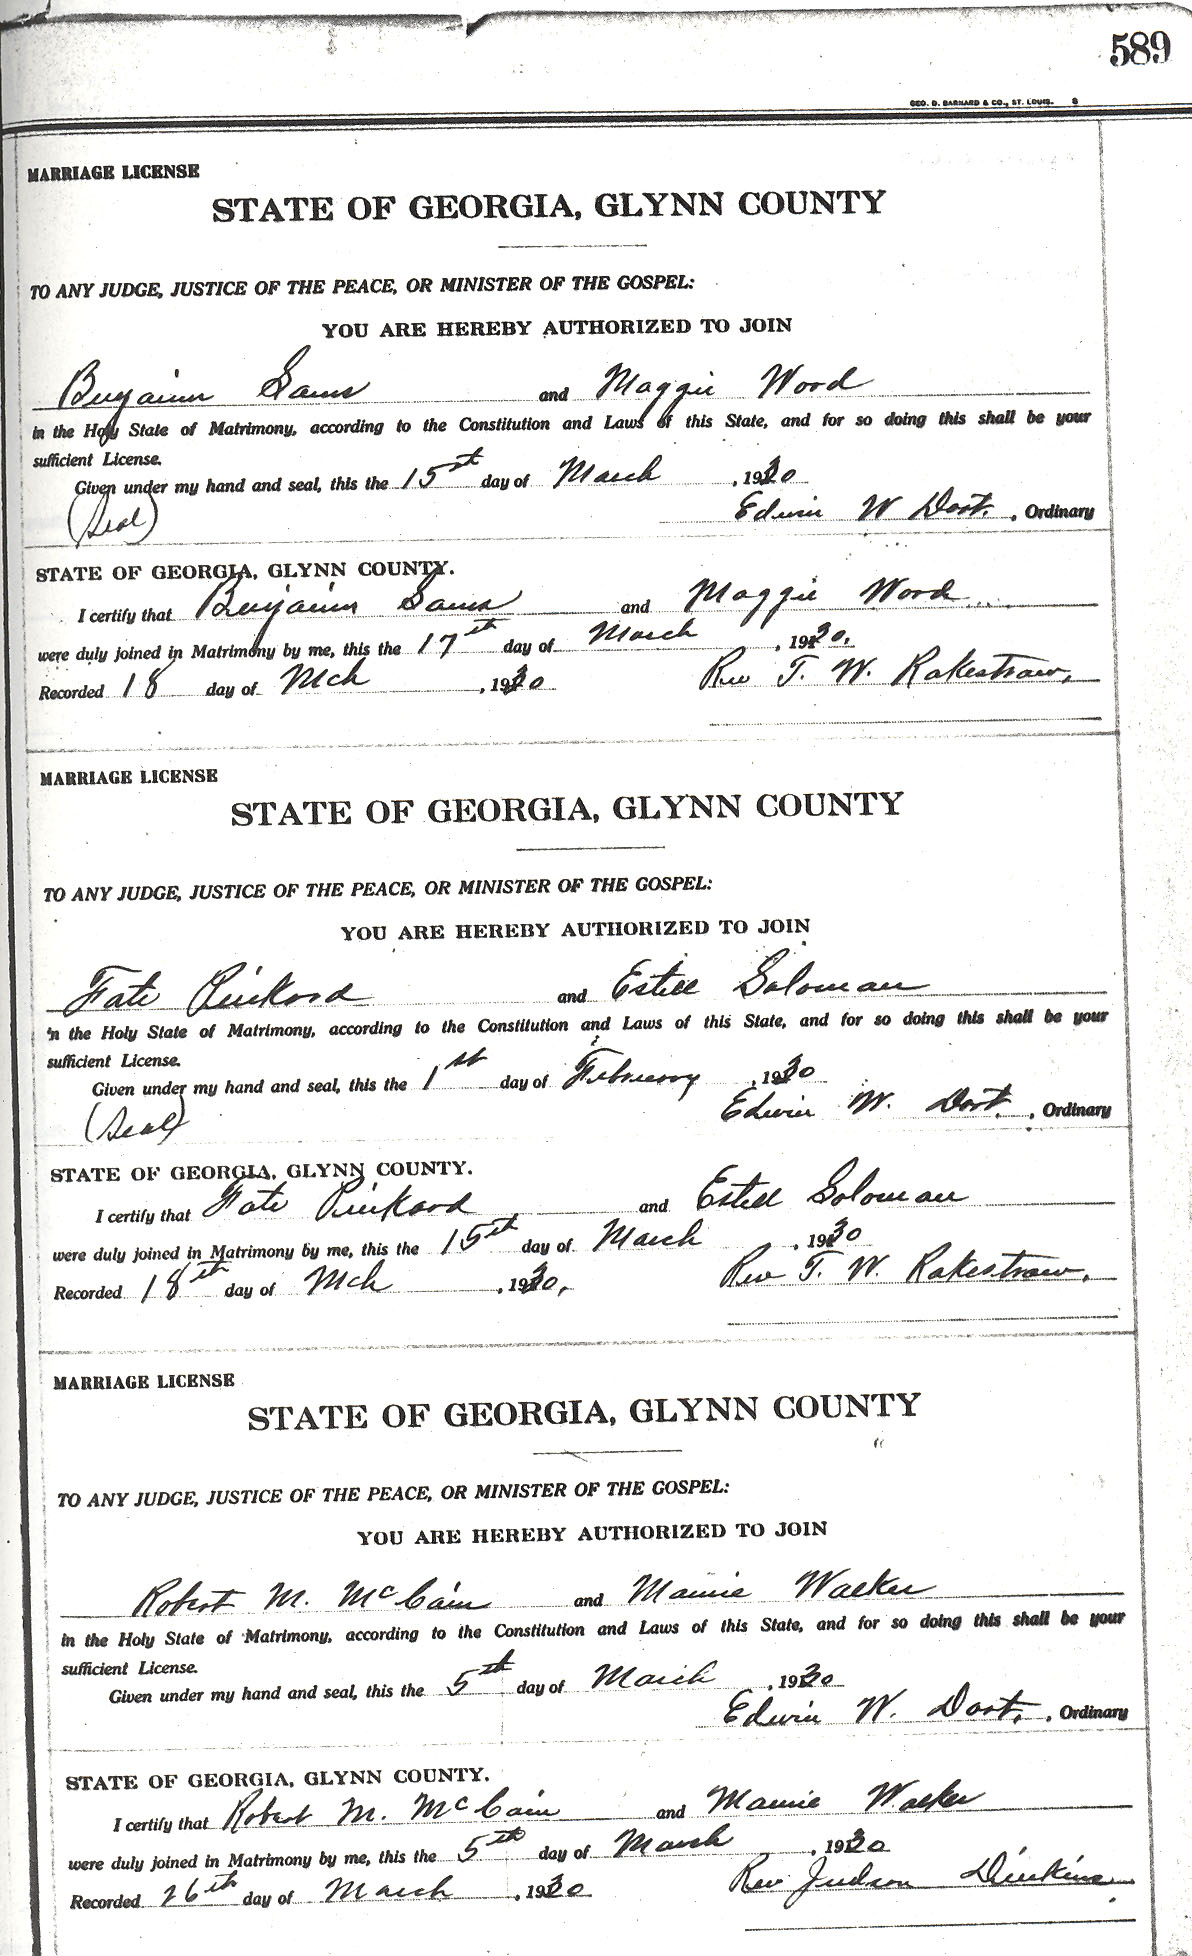 589
GEO. D. BARNARD & CO., ST. LOUIS. 8
MARRIAGE LICENSE
STATE OF GEORGIA, GLYNN COUNTY
TO ANY JUDGE, JUSTICE OF THE PEACE, OR MINISTER OF THE GOSPEL:
YOU ARE HEREBY AUTHORIZED TO JOIN
Benjamin Sams and Maggie Wood
in the Holy State of Matrimony, according to the Constitution and Laws of this State, and for so doing this shall be your
sufficient License.
Given under my hand and seal, this the 15st day of March, 1930
(Seal) Edwin W Dart., Ordinary
STATE OF GEORGIA, GLYNN COUNTY.
I certify that Benjamin Sams and Maggie Wood
were duly joined in Matrimony by me, this the 17th day of March, 1930.
Recorded 18 day of Mch, 1930 Rev T. W. Rakestraw,
MARRIAGE LICENSE
STATE OF GEORGIA, GLYNN COUNTY
TO ANY JUDGE, JUSTICE OF THE PEACE, OR MINISTER OF THE GOSPEL:
YOU ARE HEREBY AUTHORIZED TO JOIN
Fate Pinkard and Estell Soloman
in the Holy State of Matrimony, according to the Constitution and Laws of this State, and for so doing this shall be your
sufficient License.
Given under my hand and seal, this the 1st day of February, 1930
(Seal) Edwin W. Dart., Ordinary
STATE OF GEORGIA, GLYNN COUNTY.
I certify that Fate Pinkard and Estell Soloman
were duly joined in Matrimony by me, this the 15th day of March, 1930
Recorded 18th day of Mch, 1930, Rev T. W. Rakestraw,
MARRIAGE LICENSE
STATE OF GEORGIA, GLYNN COUNTY
TO ANY JUDGE, JUSTICE OF THE PEACE, OR MINISTER OF THE GOSPEL:
YOU ARE HEREBY AUTHORIZED TO JOIN
Robert M. McCain and Mamie Walker
in the Holy State of Matrimony, according to the Constitution and Laws of this State, and for so doing this shall be your
sufficient License.
Given under my hand and seal, this the 5th day of March, 1930
Edwin W. Dart., Ordinary
STATE OF GEORGIA, GLYNN COUNTY.
I certify that Robert M. McCain and Mamie Walker
were duly joined in Matrimony by me, this the 5th day of March, 1930
Recorded 26th day of March, 1930 Rev Judson Dinkins.